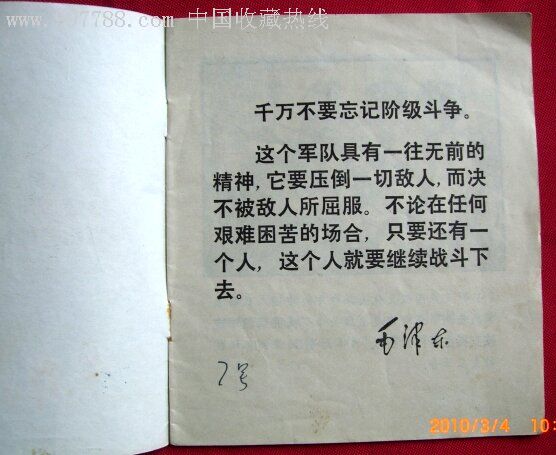 www.997788.com 中国收藏热线
千万不要忘记阶级斗争。
这个军队具有一往无前的
精神,它要压倒一切敌人,而决
不被敌人所屈服。不论在任何
艰难困苦的场合，只要还有一
个人，这个人就要继续战斗下
去。
毛泽东
7号
2010/3/4